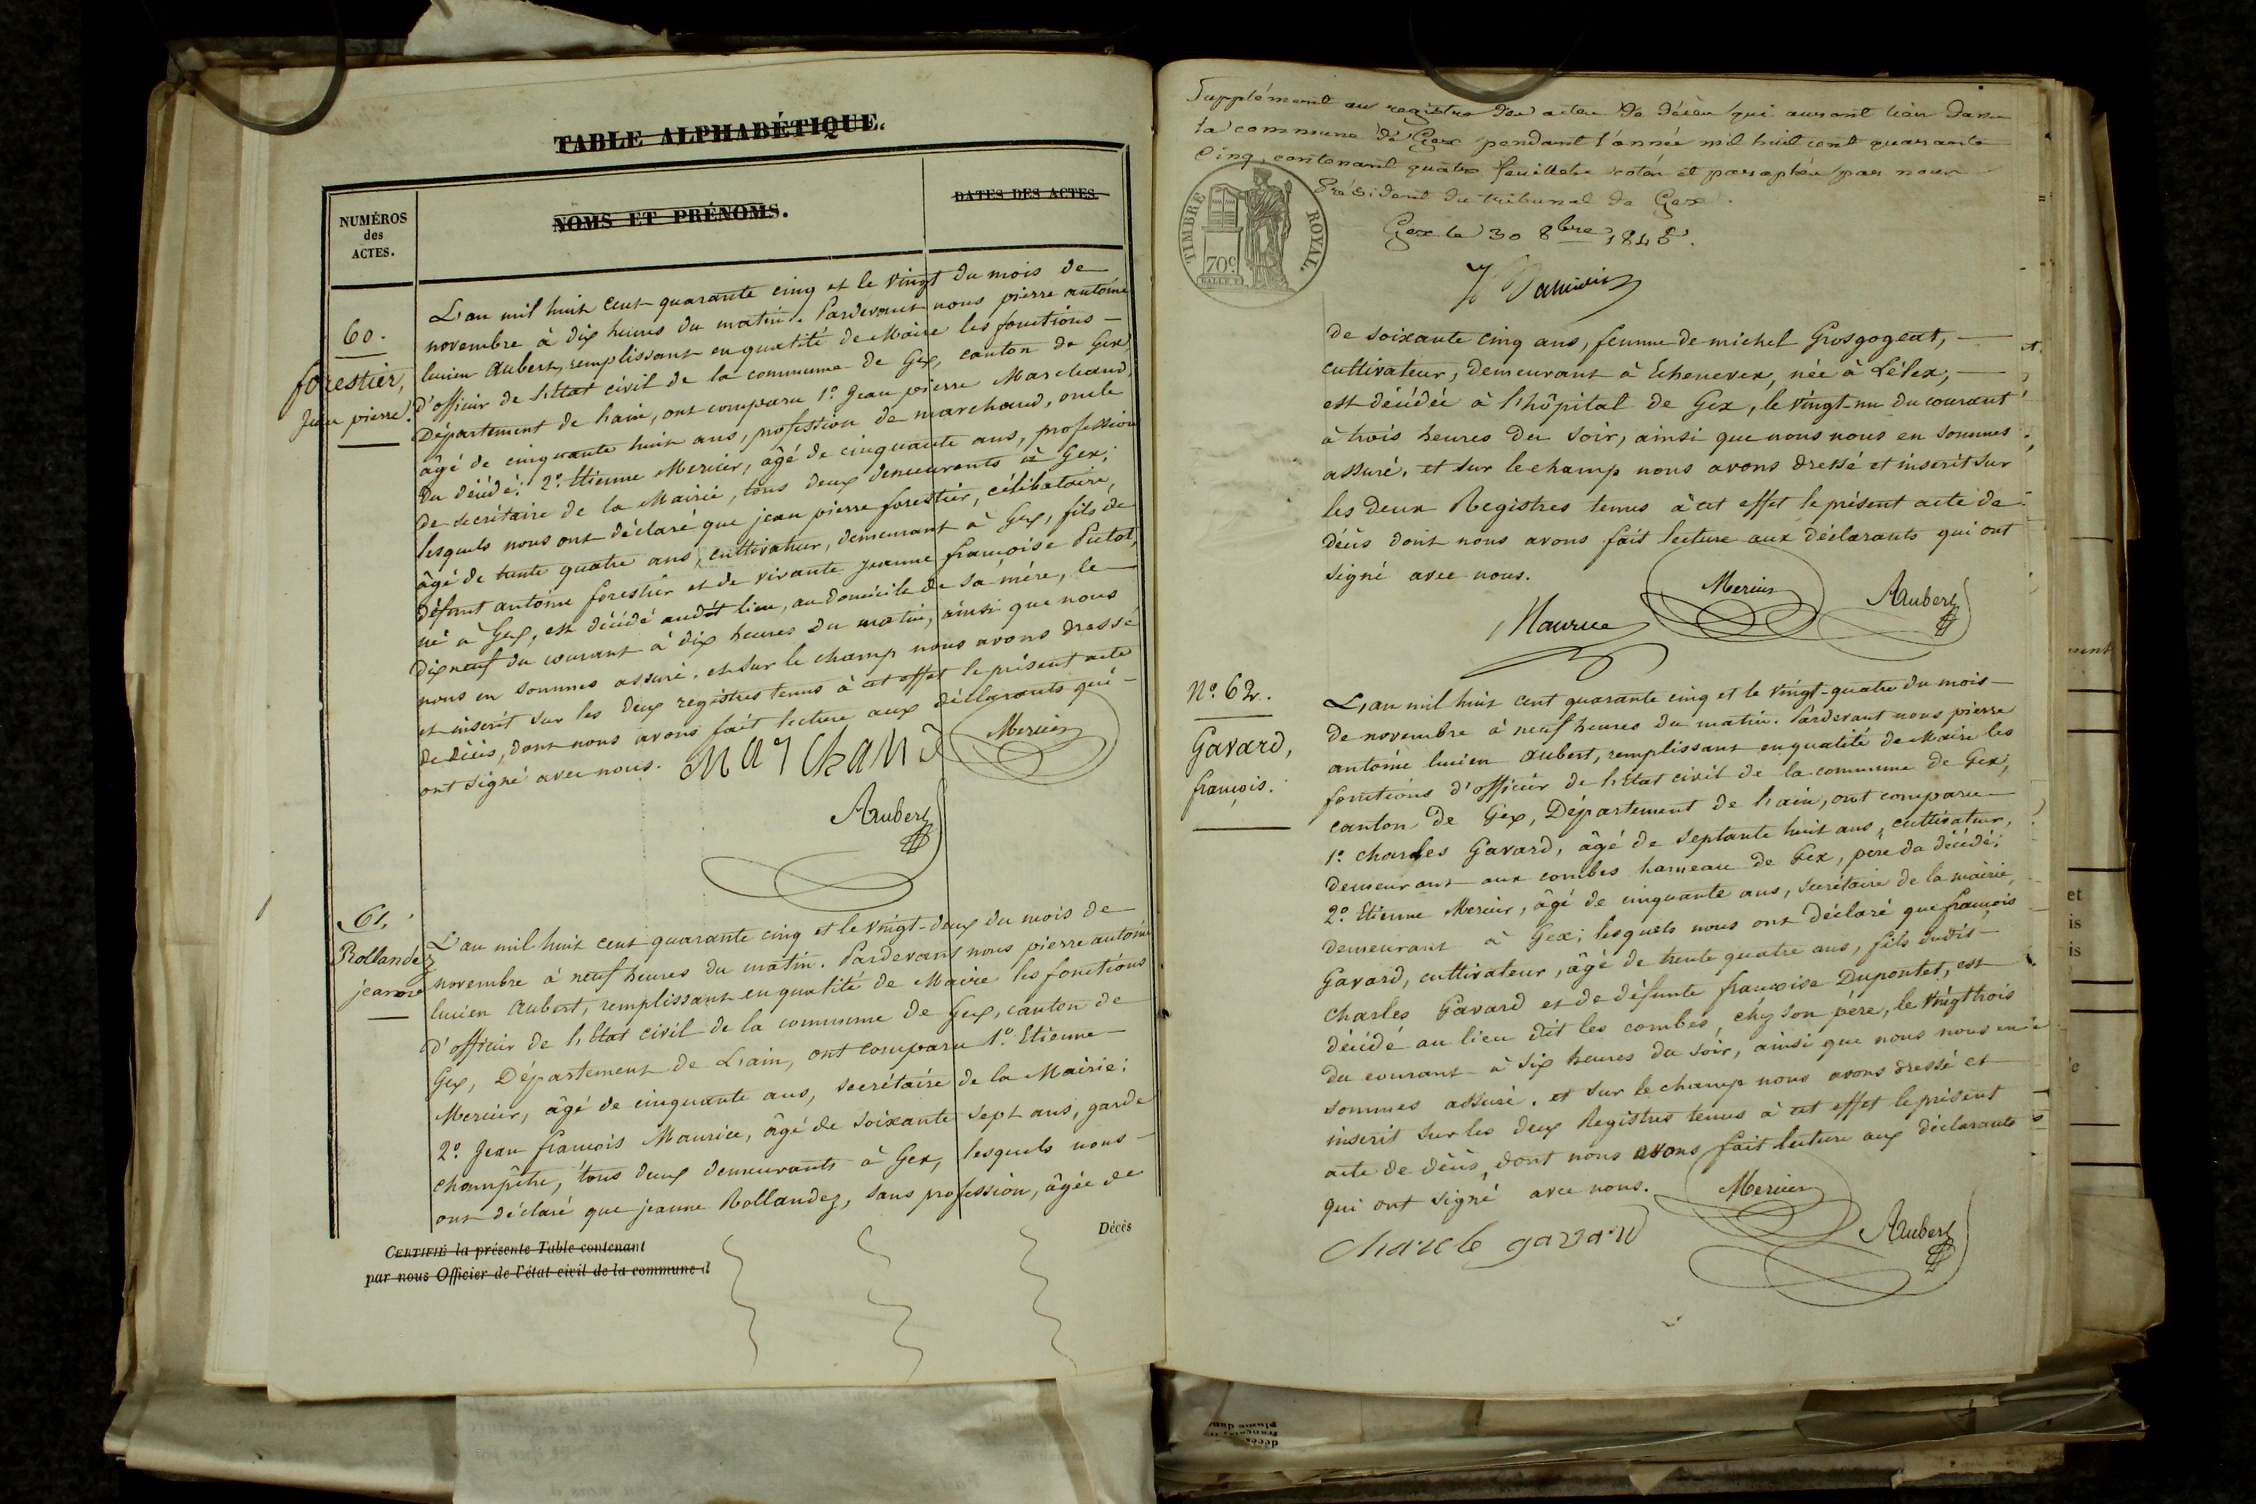 TABLE ALPHABÉTIQUE.
NUMÉROS
des
ACTES.
NOMS ET PRÉNOMS.
DATES DES ACTES.
60.
forestier,
Jean pierre.
L'an mil huit cent quarante cinq et le vingt du mois de
novembre à dix heures du matin. Pardevant nous pierre antoine
lucien Aubert, remplissant en qualité de Maire les fonctions
d'officier de l'Etat civil de la commune de Gex, canton de Gex,
Département de l'ain, ont comparu 1.° Jean pierre Marchand,
âgé de cinquante huit ans, profession de marchand, oncle
du décédé; 2.° Etienne Mercier, âgé de cinquante ans, profession
de secrétaire de la Mairie, tous deux demeurants à Gex;
lesquels nous ont déclaré que jean pierre forestier, célibataire,
âgé de trente quatre ans, cultivateur, demeurant à Gex, fils de
défunt antoine forestier et de vivante jeanne françoise Pictot,
né à Gex, est décédé audit lieu, au domicile de sa mère, le
dix neuf du courant à dix heures du matin, ainsi que nous
nous en sommes assuré. et sur le champ nous avons dressé
et inscrit sur les deux registres tenus à cet effet le présent acte
de décès, dont nous avons fait lecture aux déclarants qui
ont signé avec nous.
Marchand
Mercier
Aubert
61.
Rollandez
jeanne
L'an mil huit cent quarante cinq et le vingt-deux du mois de
novembre à neuf heures du matin. Pardevant nous pierre antoine
lucien Aubert, remplissant en qualité de Maire les fonctions
d'officier de l'Etat civil de la commune de Gex, canton de
Gex, Département de L'ain, ont comparu 1.° Etienne
Mercier, âgé de cinquante ans, secrétaire de la Mairie;
2.° Jean françois Maurice, âgé de soixante sept ans, garde
champêtre, tous deux demeurants à Gex, lesquels nous
ont déclaré que jeanne Rollandez, sans profession, âgée de
Décès
CERTIFIÉ la présente Table contenant
par nous Officier de l'état civil de la commune d
Supplément au registre des actes de décès qui auront lieu dans
la commune de Gex pendant l'année mil huit cent quarante
Cinq, contenant quatre feuillets cotés et paraphés par nous
Président du tribunal de Gex.
Gex le 30 8bre 1845.
TIMBRE ROYAL.
70c
de soixante cinq ans, femme de michel Grosgogeat,
cultivateur, demeurant à Echenevex, née à Lélex,
est décédée à l'hôpital de Gex, le vingt-un du courant
à trois heures du soir, ainsi que nous nous en sommes
assuré. et sur le champ nous avons dressé et inscrit sur
les deux Registres tenus à cet effet le présent acte de
décès dont nous avons fait lecture aux déclarants qui ont
signé avec nous.
Maurice
Mercier
Aubert
N.° 62.
Gavard,
françois.
L'an mil huit cent quarante cinq et le vingt-quatre du mois
de novembre à neuf heures du matin. Pardevant nous pierre
antoine lucien Aubert, remplissant en qualité de Maire les
fonctions d'officier de l'Etat civil de la commune de Gex,
canton de Gex, Département de l'ain, ont comparu
1.° charles Gavard, âgé de septante huit ans, cultivateur,
demeurant aux combes hameau de Gex, père du décédé;
2.° Etienne Mercier, âgé de cinquante ans, secrétaire de la mairie,
demeurant à Gex; lesquels nous ont déclaré que françois
Gavard, cultivateur, âgé de trente quatre ans, fils dudit
Charles Gavard et de défunte françoise Dupontet, est
décédé au lieu dit les combes, chez son père, le vingt trois
du courant à six heures du soir, ainsi que nous nous en
sommes assuré. et sur le champ nous avons dressé et
inscrit sur les deux Registres tenus à cet effet le présent
acte de décès, dont nous avons fait lecture aux déclarants
qui ont signé avec nous.
Mercier
Aubert
Charle gavard
et
is
is